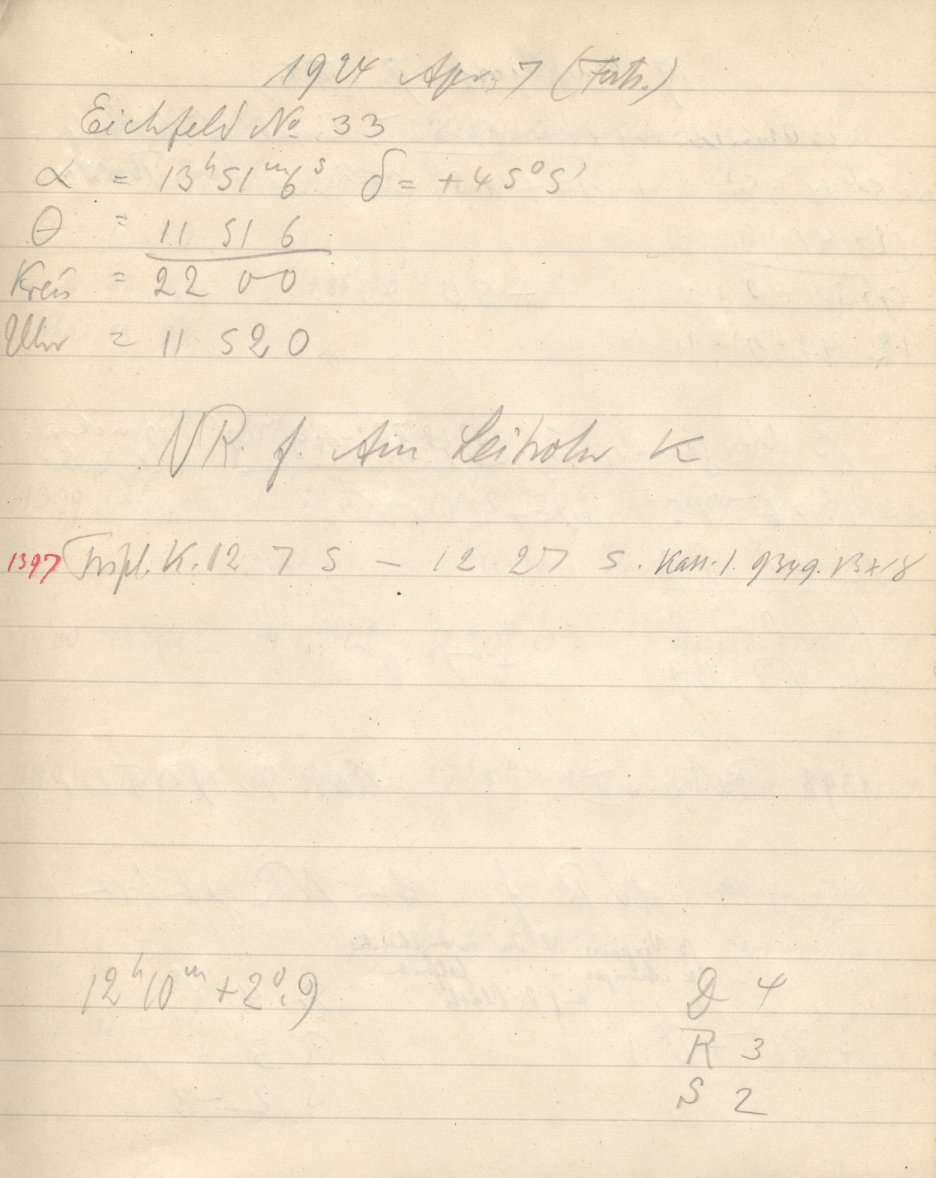 1924 Apr. 7 (Forts.)
Eichfeld No 33
α = 13ʰ 51ᵐ 6ˢ δ = +45° 5'
θ = 11 51 6
Kreis = 22 0 0
Uhr = 11 52 0
VR. f. Am Leitrohr K
1397 Tripl. K. 12 7 5 – 12 27 5. Kass. 1. 13x18
12ʰ 10ᵐ +2°.9
D 4
R 3
S 2